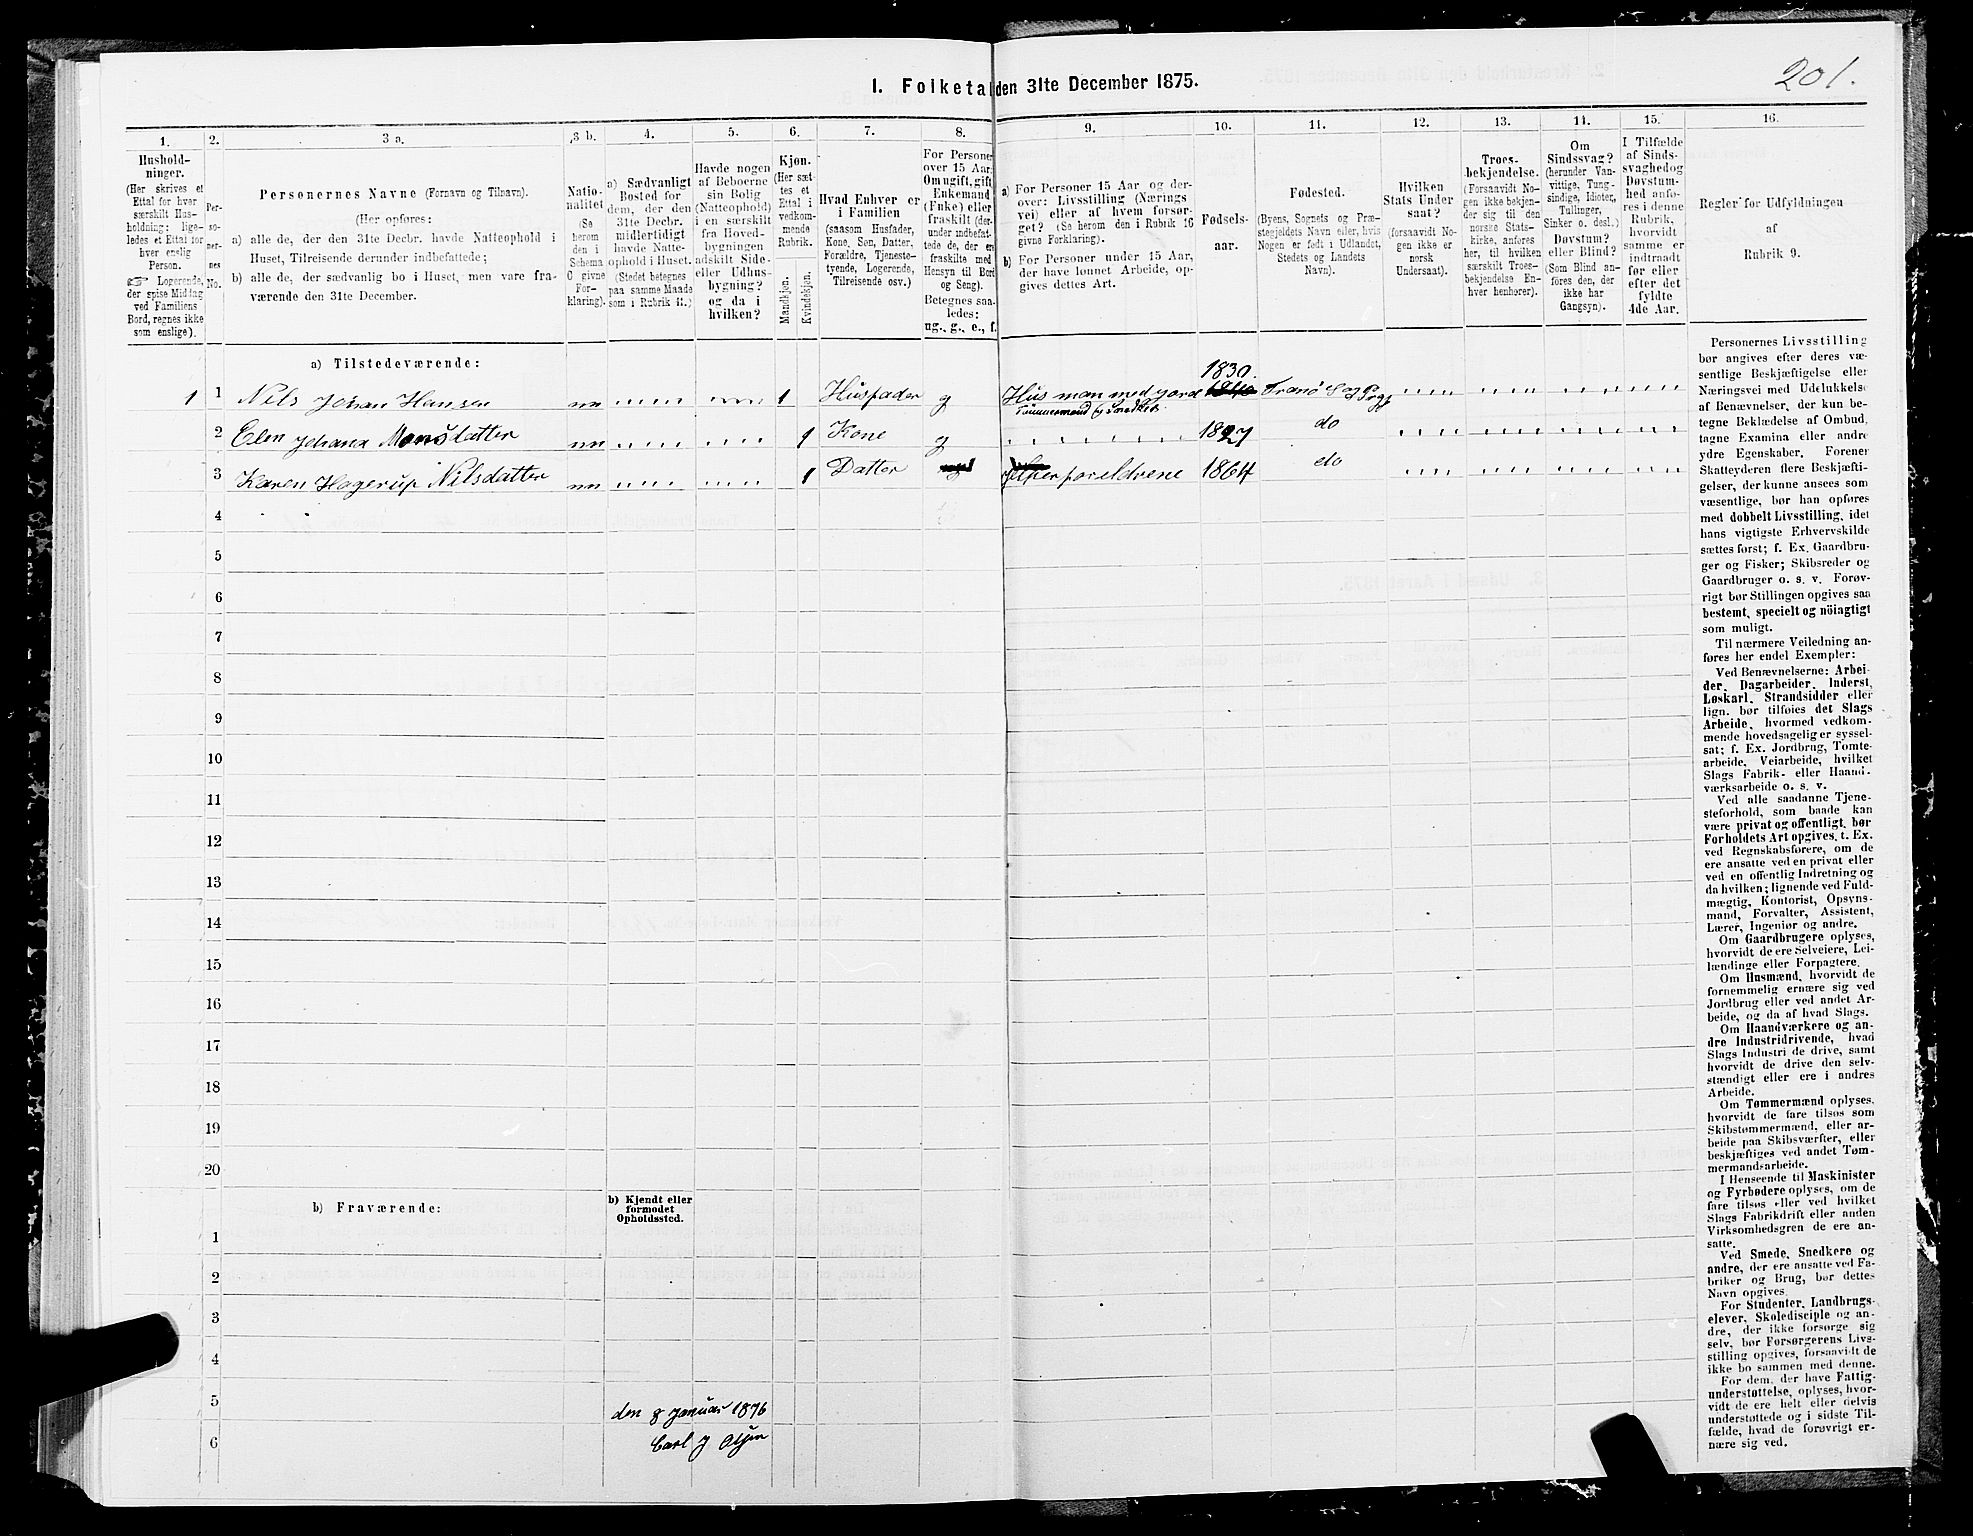 201.
I. Folketal den 31te December 1875.
1. 2. 3 a. 3 b. 4. 5. 6. 7. 8. 9. 10. 11. 12. 13. 14. 15. 16.
Hushold-
ninger.
(Her skrives et
Ettal for hver
særskilt Hus-
holdning; lige-
ledes et Ettal for
hver enslig
Person.
☞ Logerende,
der spise Middag
ved Familiens
Bord, regnes ikke
som enslige).
Per-
so-
ner-
nes
No.
Personernes Navne (Fornavn og Tilnavn).
(Her opføres:
a) alle de, der den 31te Decbr. havde Natteophold i
Huset, Tilreisende derunder indbefattede;
b) alle de, der sædvanlig bo i Huset, men vare fra-
værende den 31te December.
Natio-
nalitet
(Se
herom
den i
Schema
C givne
For-
klaring).
a) Sædvanligt
Bosted for
dem, der den
31te Decbr.
midlertidigt
havde Natte-
ophold i Huset.
(Stedet betegnes
paa samme Maade
som i Rubrik 11.)
Havde nogen
af Beboerne
sin Bolig
(Natteophold)
i en særskilt
fra Hoved-
bygningen
adskilt Side-
eller Udhus-
bygning?
og da i
hvilken?
Kjøn.
(Her sæt-
tes et
Ettal i
vedkom-
mende
Rubrik.
Mandkjøn.
Kvindekjøn.
Hvad Enhver er
i Familien
(saasom Husfader,
Kone, Søn, Datter,
Forældre, Tjeneste-
tyende, Logerende,
Tilreisende osv.)
For Personer
over 15 Aar:
Om ugift, gift,
Enkemand
(Enke) eller
fraskilt (der-
under indbefat-
tede de, der ere
fraskilte med
Hensyn til Bord
og Seng).
Betegnes saa-
ledes:
ug., g., e., f.
a) For Personer 15 Aar og der-
over: Livsstilling (Nærings-
vei) eller af hvem forsør-
get? (Se herom den i Rubrik 16
givne Forklaring).
b) For Personer under 15 Aar,
der have lønnet Arbeide, op-
gives dettes Art.
Fødsels-
aar.
Fødested.
(Byens, Sognets og Præ-
stegjeldets Navn eller, hvis
Nogen er født i Udlandet,
Stedets og Landets
Navn).
Hvilken
Stats Under
saat?
(forsaavidt No-
gen ikke er
norsk
Undersaat).
Troes-
bekjendelse.
(Forsaavidt No-
gen ikke bekjen-
der sig til den
norske Stats-
kirke, anføres
her, til hvilken
særskilt Troes-
bekjendelse En-
hver henhører).
Om
Sindssvag?
(herunder Van-
vittige, Tung-
sindige, Idioter,
Tullinger,
Sinker o. desl.)
Døvstum?
eller Blind?
(Som Blind an-
føres den, der
ikke har
Gangsyn).
I Tilfælde
af Sinds-
svaghed og
Døvstum-
hed anfø-
res i denne
Rubrik,
hvorvidt
samme er
indtraadt
før eller
efter det
fyldte
4de Aar.
Regler for Udfyldningen
af
Rubrik 9.
a) Tilstedeværende:
1 1 Nils Johan Hansen nn 1 Husfader g Husmand med jord 1840 1830. Tranø S og Prgj
Tømmermand og Snedker.
2 Elen Johana Monsdatter nn 1 Kone g 1827 do
3 Karen Hagerup Nilsdatter nn 1 Datter forældrene 1864 do
4
5
6
7
8
9
10
11
12
13
14
15
16
17
18
19
20
b) Fraværende:
b) Kjendt eller
formodet
Opholdssted.
1
2
3
4
5
6
den 8 Januar 1876
Carl J Olsen
Personernes Livsstilling
bør angives efter deres væ-
sentlige Beskjæftigelse eller
Næringsvei med Udelukkelse
af Benævnelser, der kun be-
tegne Beklædelse af Ombud,
tagne Examina eller andre
ydre Egenskaber. Forener
Skatteyderen flere Beskjæfti-
gelser, der kunne ansees som
væsentlige, bør han opføres
med dobbelt Livsstilling, idet
hans vigtigste Erhvervskilde
sættes først; f. Ex. Gaardbru-
ger og Fisker; Skibsreder og
Gaardbruger o. s. v. Forøv-
rigt bør Stillingen opgives saa
bestemt, specielt og nöiagtigt
som muligt.
Til nærmere Veiledning an-
føres her endel Exempler:
Ved Benævnelserne: Arbei-
der, Dagarbeider, Inderst,
Løskarl, Strandsidder eller
lign. bør tilføies det Slags
Arbeide, hvormed vedkom-
mende hovedsagelig er syssel-
sat; f. Ex. Jordbrug, Tomte-
arbeide, Veiarbeide, hvilket
Slags Fabrik- eller Haand-
værksarbeide o. s. v.
Ved alle saadanne Tjene-
steforhold, som baade kan
være privat og offentligt, bør
Forholdets Art opgives, t. Ex.
ved Regnskabsførere, om de
ere ansatte ved en privat eller
ved en offentlig Indretning og
da hvilken; lignende ved Fuld-
mægtig, Kontorist, Opsyns-
mand, Forvalter, Assistent,
Lærer, Ingeniør og andre.
Om Gaardbrugere oplyses,
hvorvidt de ere Selveiere, Lei-
lændinge eller Forpagtere.
Om Husmænd, hvorvidt de
fornemmelig ernære sig ved
Jordbrug eller ved andet Ar-
beide, og da af hvad Slags.
Om Haandværkere og an-
dre Industridrivende, hvad
Slags Industri de drive, samt
hvorvidt de drive den selv-
stændigt eller ere i andres
Arbeide.
Om Tømmermænd oplyses,
hvorvidt de fare tilsøs som
Skibstømmermænd, eller ar-
beide paa Skibsværfter, eller
beskjæftiges ved andet Tøm-
mermandsarbeide.
I Henseende til Maskinister
og Fyrbødere oplyses, om de
fare tilsøs eller ved hvilket
Slags Fabrikdrift eller anden
Virksomhedsgren de ere an-
satte.
Ved Smede, Snedkere og
andre, der ere ansatte ved Fa-
briker og Brug, bør dettes
Navn opgives.
For Studenter, Landbrugs-
elever, Skoledisciple og an-
dre, der ikke forsørge sig
selv, bør Forsørgerens Livs-
stilling opgives, forsaavidt de
ikke bo sammen med denne.
For dem, der have Fattig-
understøttelse, oplyses, hvor-
vidt de ere helt eller delvis
understøttede og i sidste Til-
fælde, hvad de forøvrigt er-
nære sig ved.